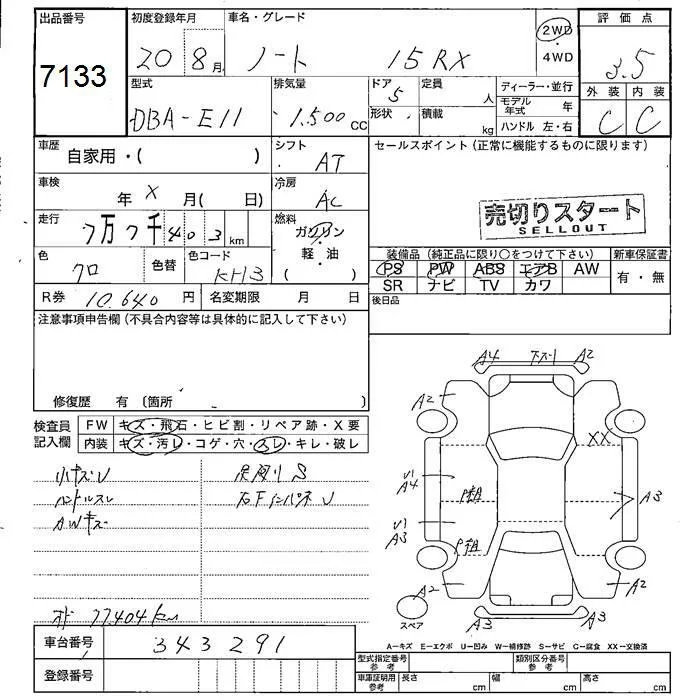 出品番号 初度登録年月 車名・グレード 評価点
7133 20 8月 ノート 15RX 2WD・4WD 3.5
型式 排気量 ドア 定員 ディーラー・並行 外装 内装
DBA-E11 1.500 CC 5 人 モデル年式 年 C C
形状 積載 kg ハンドル 左・右
車歴 自家用・( ) シフト AT セールスポイント(正常に機能するものに限ります)
車検 年 X 月( 日) 冷房 AC
売切りスタート
SELLOUT
走行 7万7千403km 燃料 ガソリン・軽油 ( )
装備品(純正品に限り○をつけて下さい) 新車保証書
色 クロ 色替 色コード KH3 PS PW ABS エアB AW 有・無
SR ナビ TV カワ
R券 10.640円 名変期限 月 日 後日品
注意事項申告欄(不具合内容等は具体的に記入して下さい)
修復歴 有(箇所 )
検査員記入欄 FW キズ・飛石・ヒビ割・リペア跡・X要
内装 キズ・汚レ・コゲ・穴・スレ・キレ・破レ
小キズU
ハンドルスレ
AWキズ
77404km
車台番号 343291
登録番号
A4 A2
A2
XX
U1
A4 A3
U1
A3
A2 A2
スペア A3 A3
A-キズ E-エクボ U-凹み W-補修跡 S-サビ C-腐食 XX-交換済
型式指定番号 参考 類別区分番号 参考
車庫証明用 参考 長さ cm 幅 cm 高さ cm